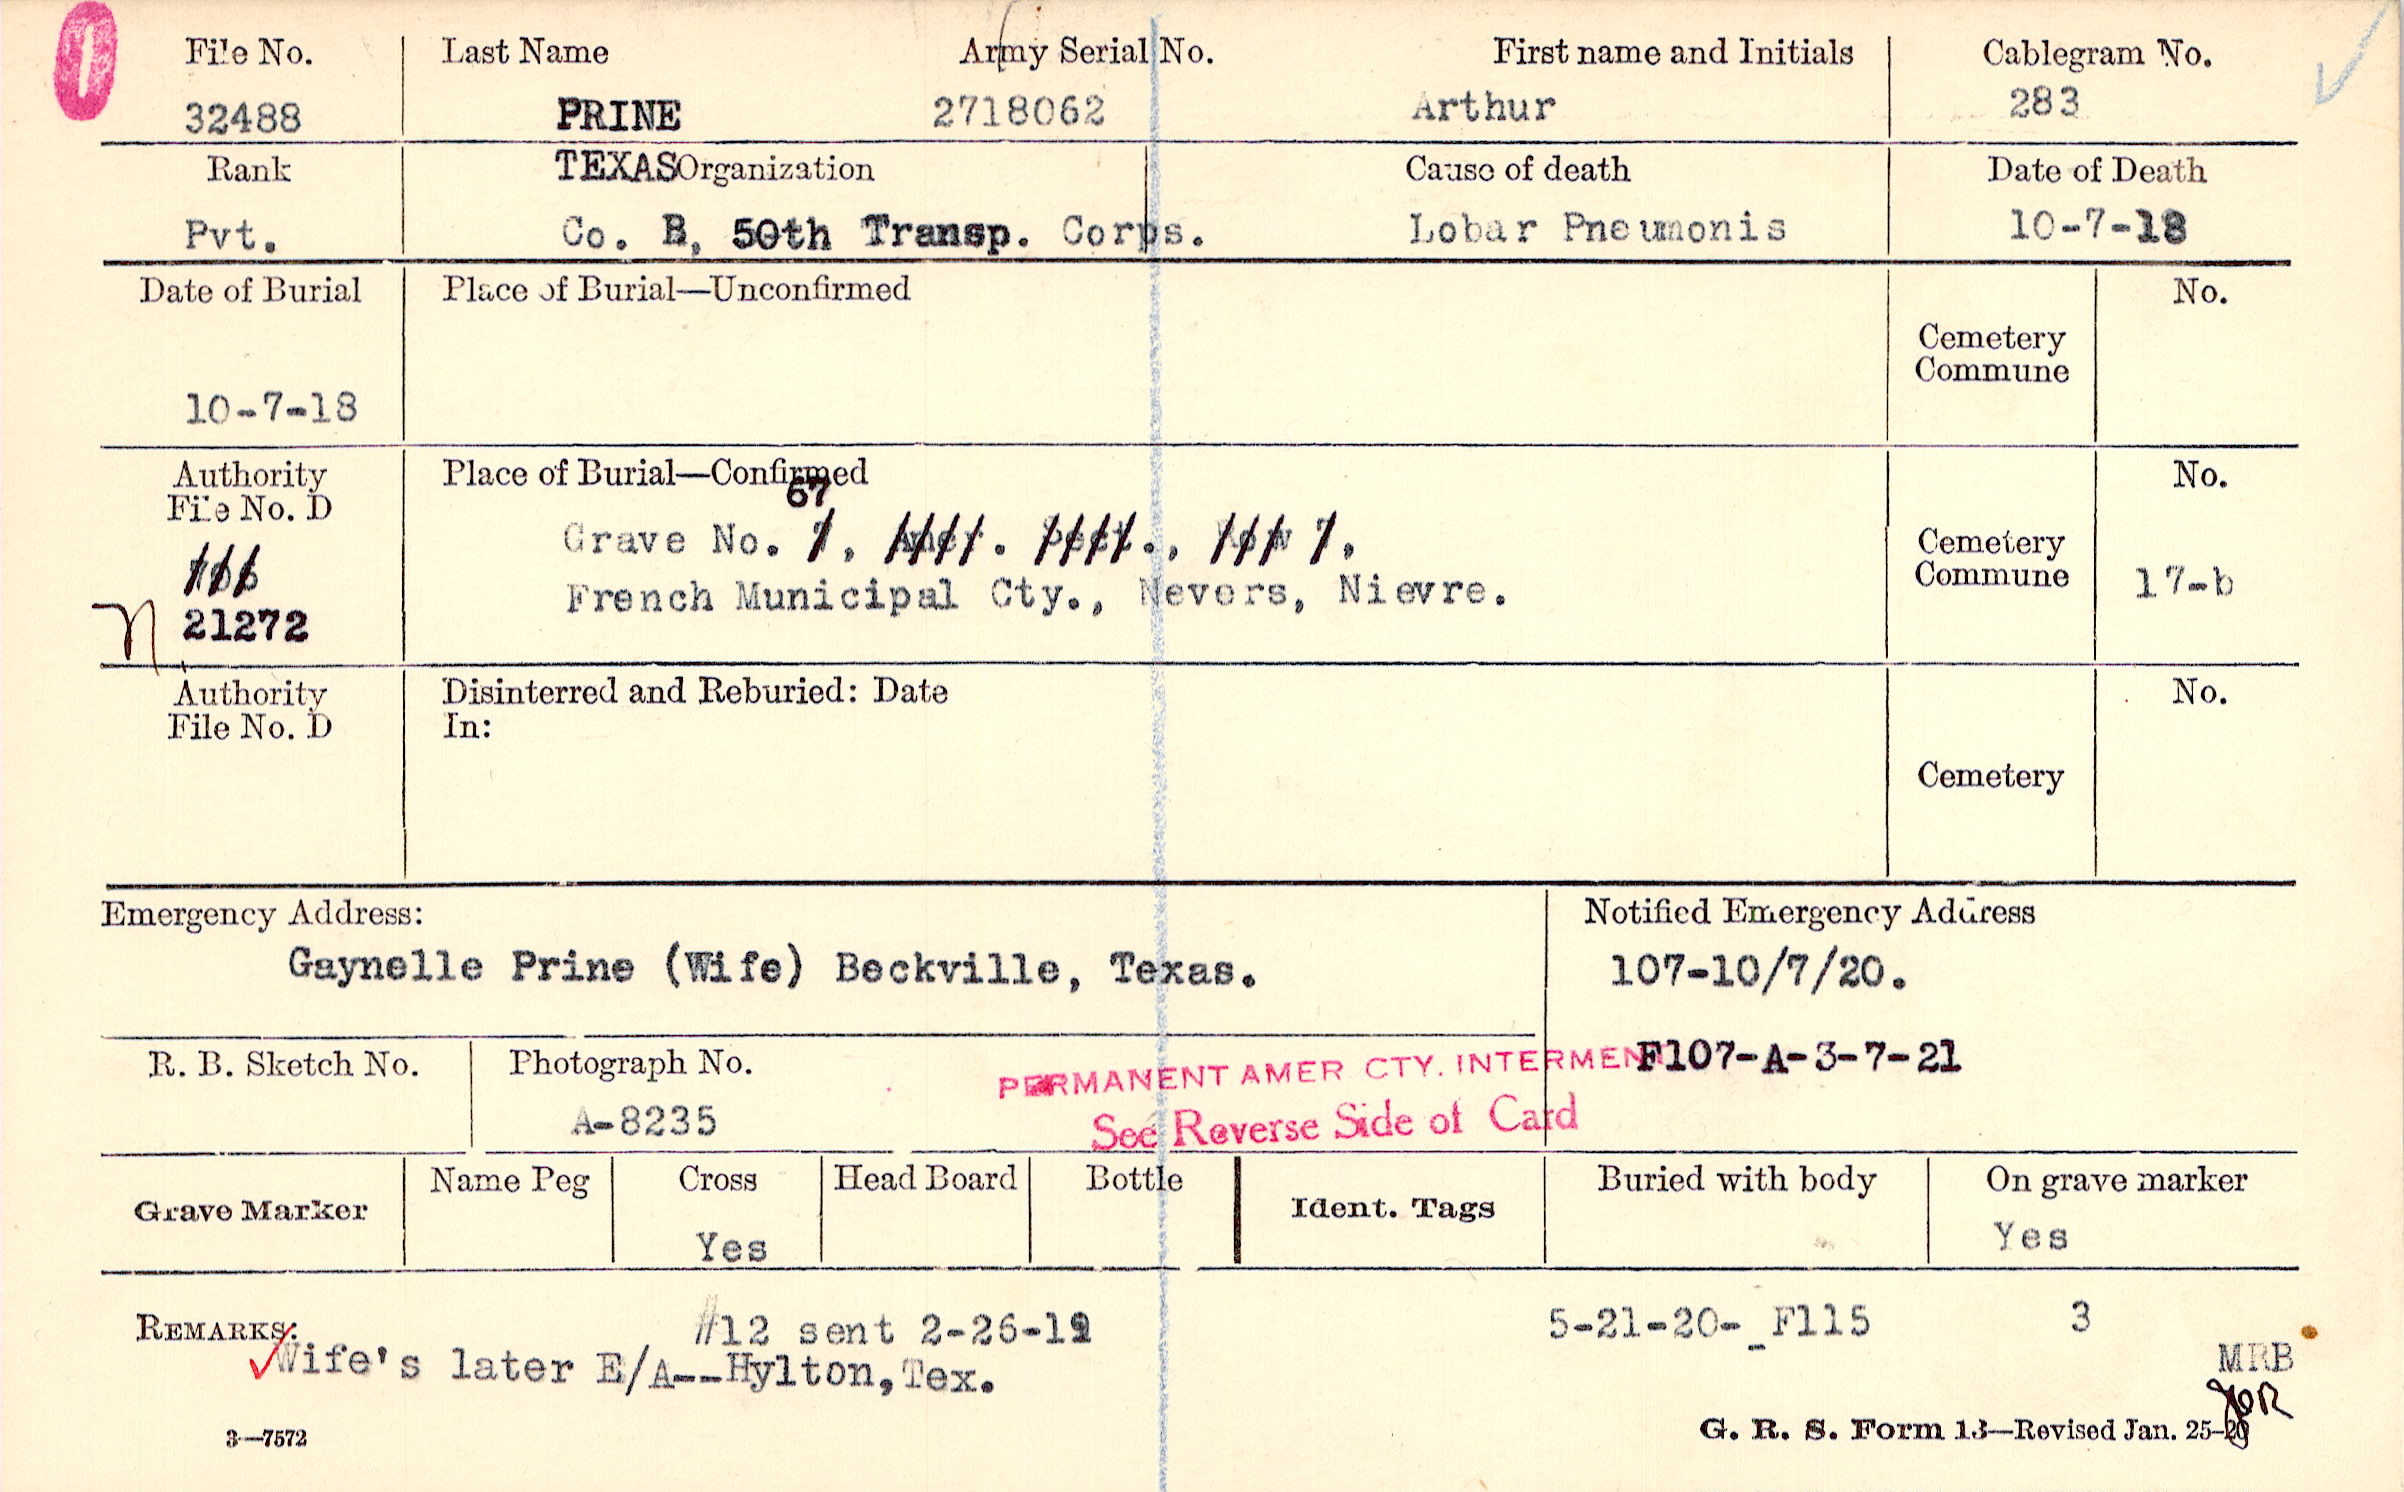 File No. Last Name Army Serial No. First name and Initials Cablegram No.
32488 PRINE 2718062 Arthur 283
Rank TEXAS Organization Cause of death Date of Death
Pvt. Co. B, 50th Transp. Corps. Lobar Pneumonis 10-7-18
Date of Burial Place of Burial—Unconfirmed No.
Cemetery
Commune
10-7-18
Authority Place of Burial—Confirmed No.
File No. D
67
Grave No. 7, Amer. Sect., Row 7. Cemetery
French Municipal Cty., Nevers, Nievre. Commune 17-b
21272
Authority Disinterred and Reburied: Date No.
File No. D In:
Cemetery
Emergency Address: Notified Emergency Address
Gaynelle Prine (Wife) Beckville, Texas. 107-10/7/20.
R. B. Sketch No. Photograph No. PERMANENT AMER CTY. INTERMENT F107-A-3-7-21
A-8235 See Reverse Side of Card
Grave Marker Name Peg Cross Head Board Bottle Ident. Tags Buried with body On grave marker
Yes Yes
REMARKS: #12 sent 2-26-19 5-21-20- F115 3
Wife's later E/A--Hylton, Tex. MRB
3—7572 G. R. S. Form 13—Revised Jan. 25-20